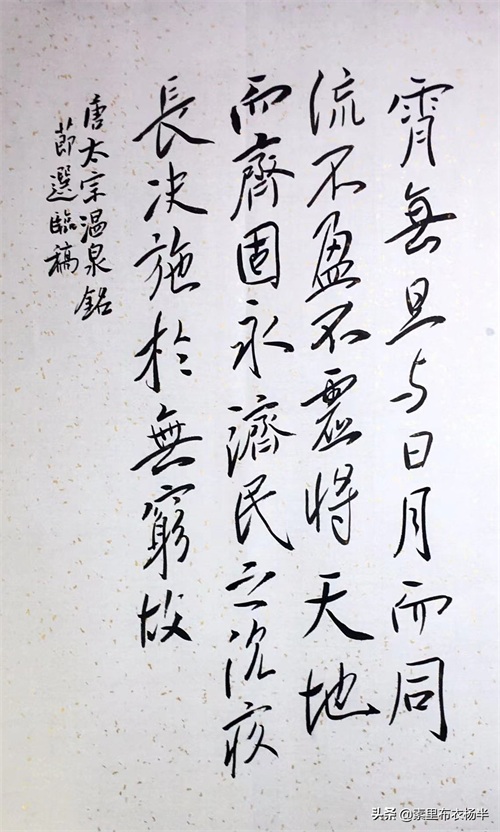 霄無旦与日月而同
流不盈不虛将天地
而齊固永濟民之沉疾
長决施於無窮故
唐太宗温泉銘
節選臨稿
头条@素里布衣杨半